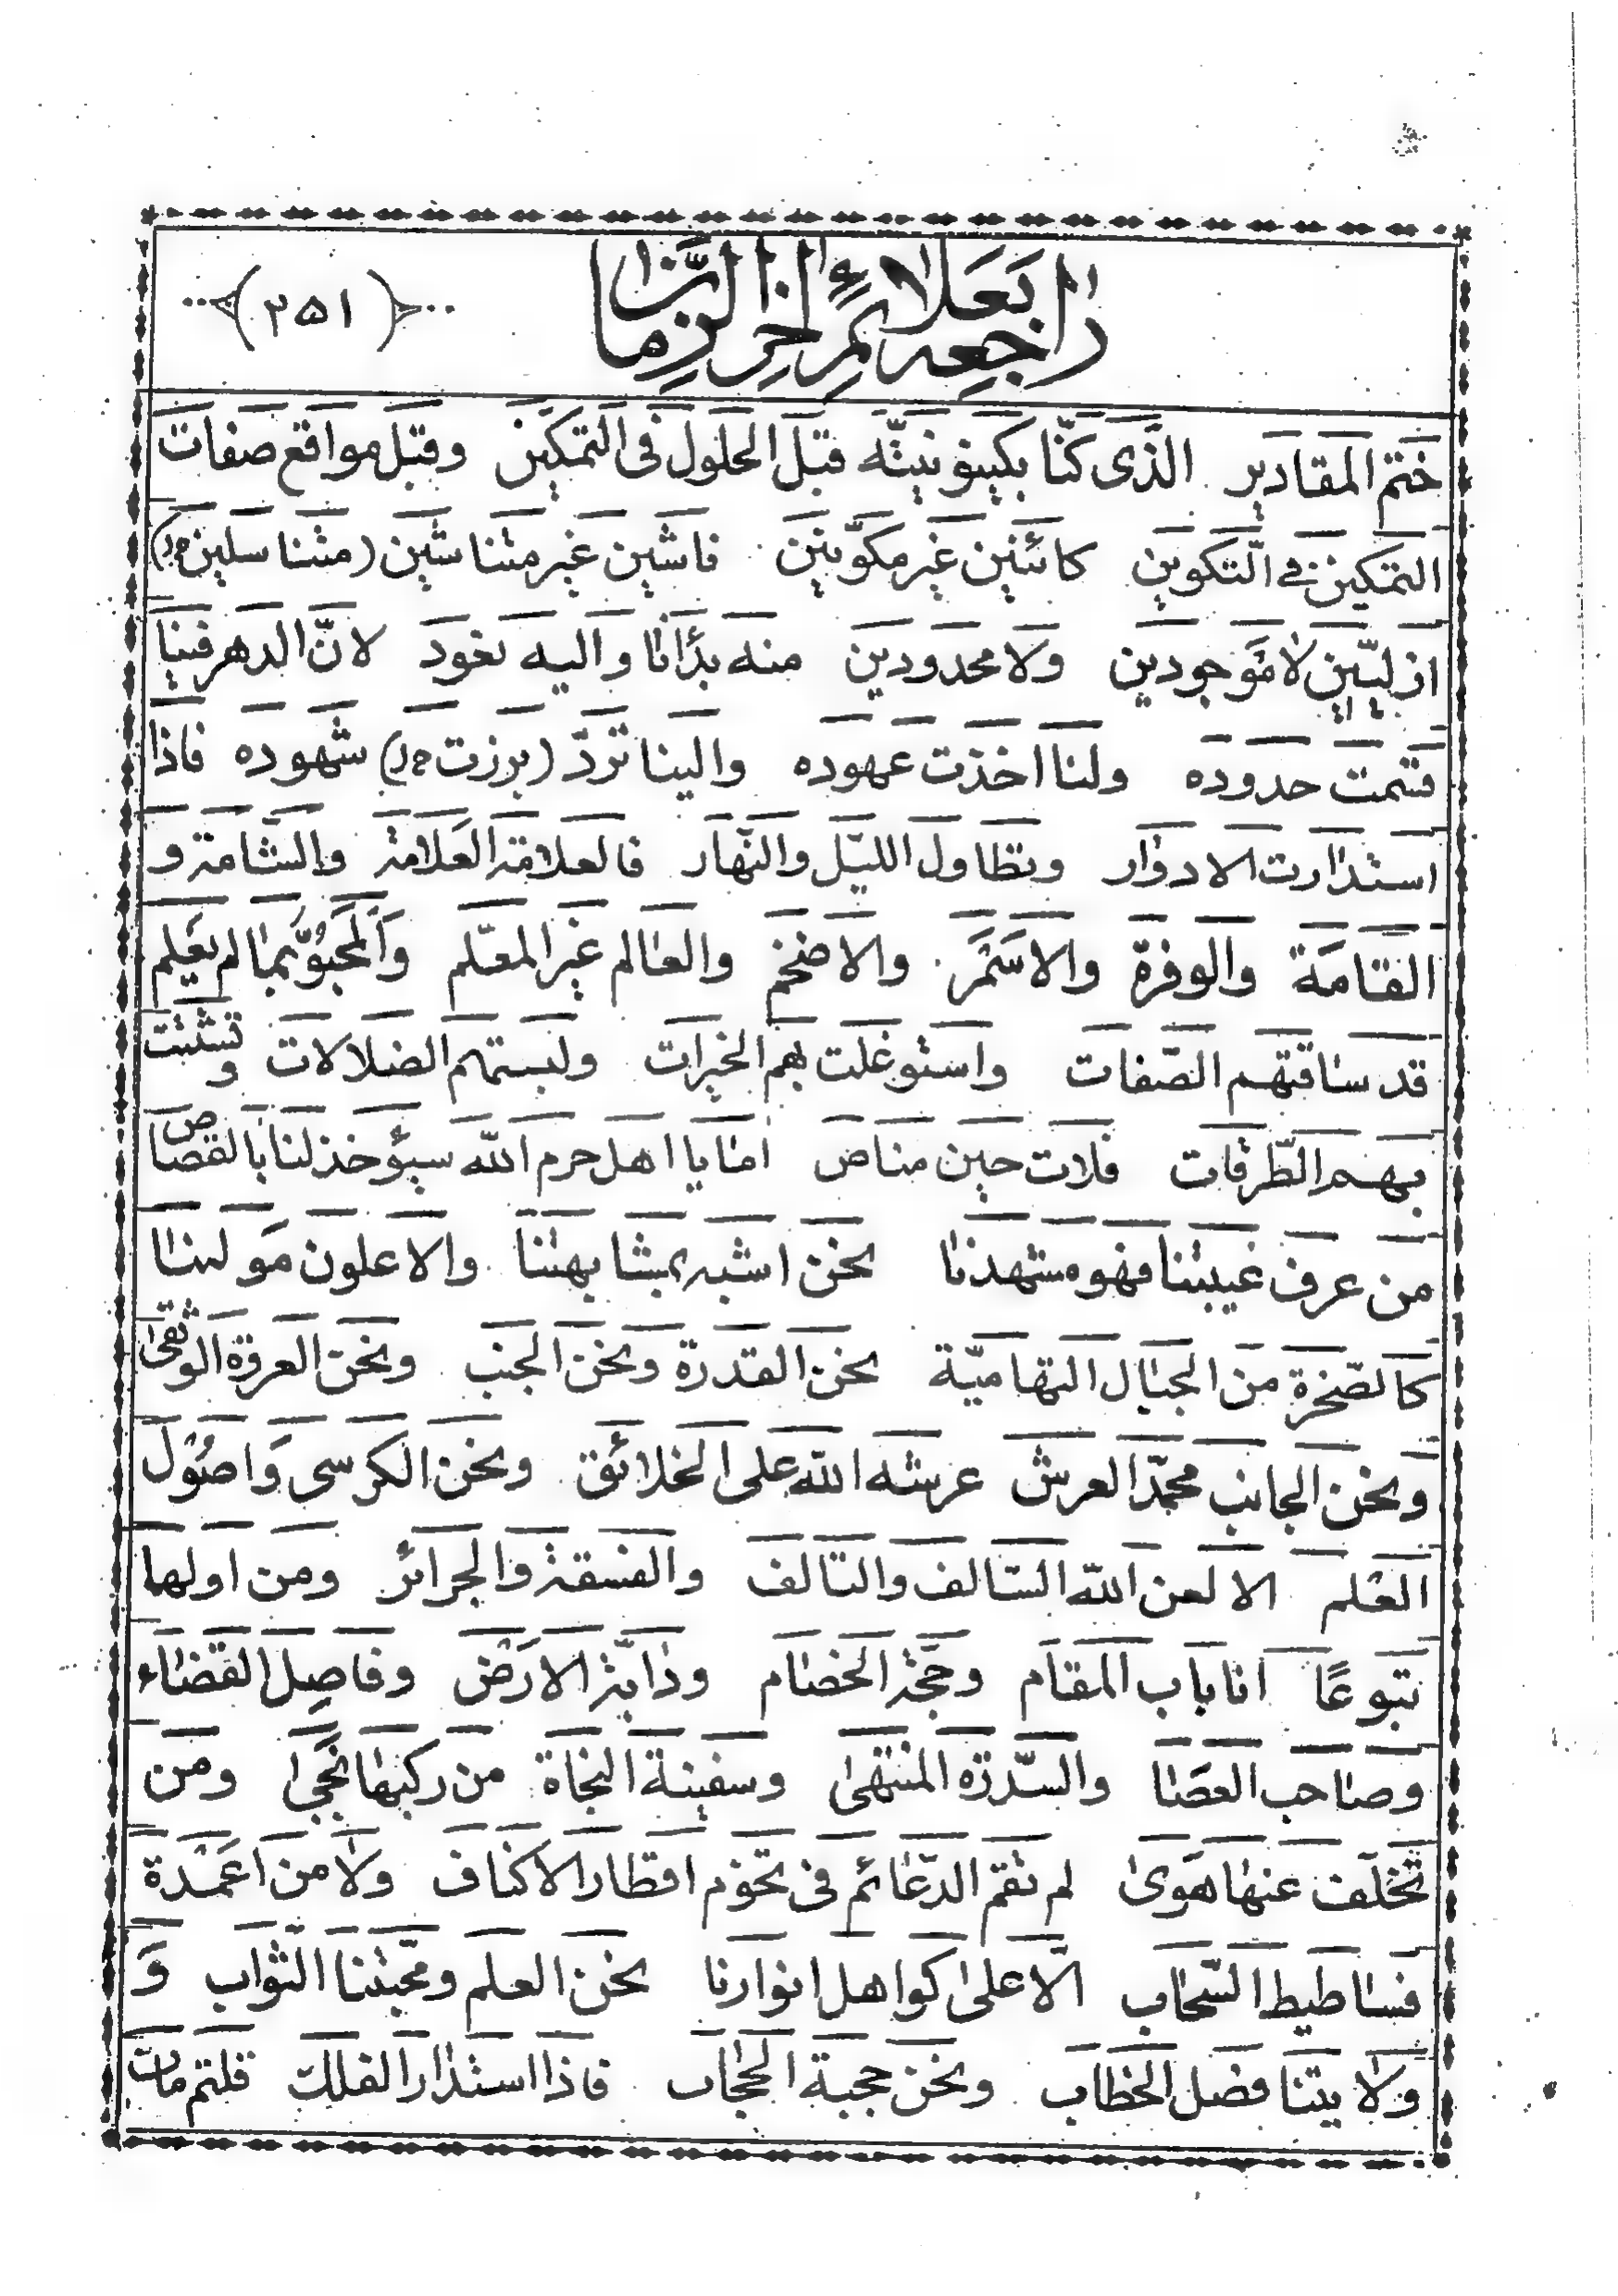 راجعه بعلائم اخر الزمان
(٢٥١)
ختم المقادير الذى كنّا بكينونيته قبل الحلول فى التمكين وقبل مواقع صفات
التمكين فى التّكوين كائنين غير مكوّنين فاشين غير متناشين (متناسلين خ د)
ازليّين لا موجودين ولا محدودين منه بدأنا واليه نعود لانّ الدهر فينا
قسّمت حدوده ولنا اخذت عهوده والينا تردّ (برزت خ د) شهوده فاذا
استدارت الادوار وتطاول الليل والنّهار فالعلامة العلامة والشّامة و
القامة والوفرة والاسمر والاضخم والعالم غير المعلّم والمحبوّ بما لم يعلم
قد ساقتهم الصّفات واستوغلت بهم الخيرات ولبستهم الضلالات و تشتّتت
بهم الطّرقات فلات حين مناص اما يا اهل حرم الله سيؤخذ لنا بالقصاص
من عرف غيبتنا فهو مشهدنا نحن اشبه بمشابهتنا والاعلون موالينا
كالصّخرة من الجبال التهاميّة نحن القدرة ونحن الجنب ونحن العروة الوثقى
ونحن الجانب محمّد العرش عرشه الله على الخلائق ونحن الكرسى واصول
العلم الا لعن الله السّالف والتالف والفسقة والجرائر ومن اولها
تبوعًا انا باب المقام وحجّة الخصام ودابّة الارض وفاصل القضاء
وصاحب العصا والسّدرة المنتهى وسفينة النجاة من ركبها نجى ومن
تخلّف عنها هوى لم تقم الدّعائم فى تخوم اقطار الاكناف ولا من اعمدة
فساطيط السّحاب الّا على كواهل انوارنا نحن العلم ومحبّتنا الثواب و
ولايتنا فصل الخطاب ونحن حجبة الحجّاب فاذا استدار الفلك قلتم مات